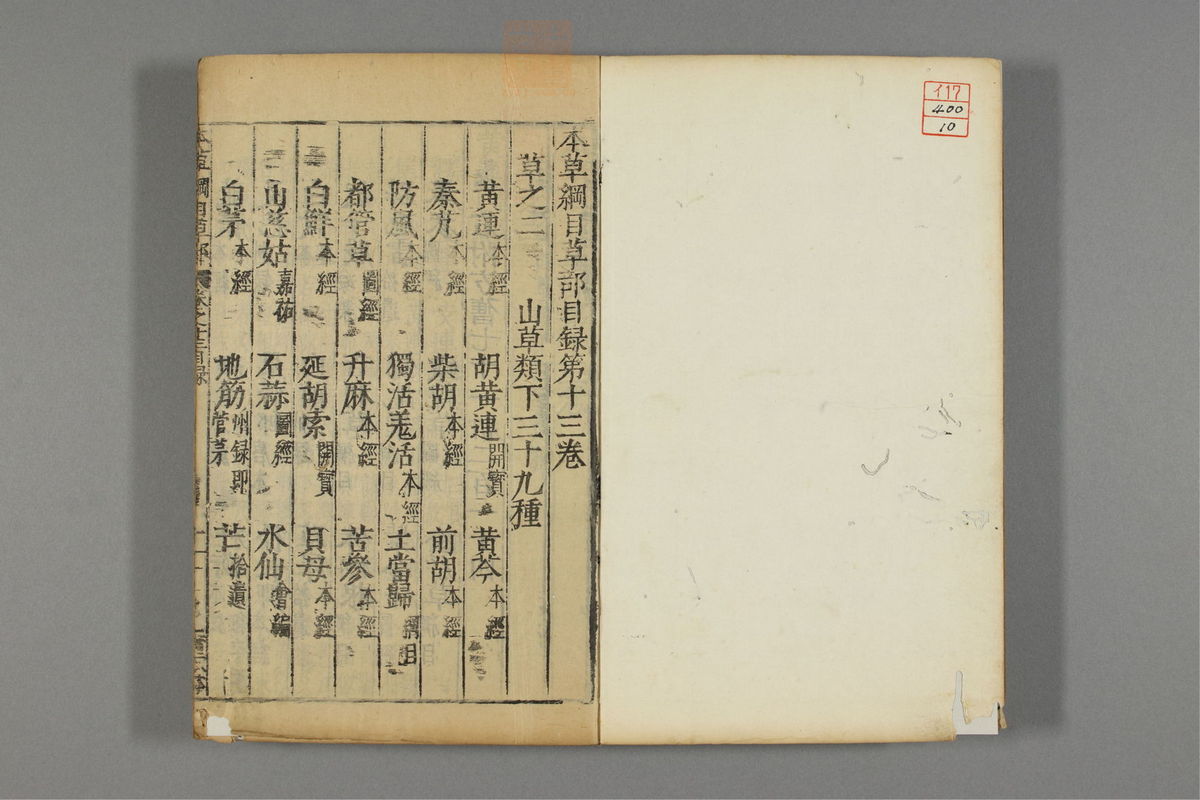 117
400
10
本草綱目草部目録第十三卷
草之二 山草類下三十九種
黃連本經 胡黃連開寶 黃芩本經
秦艽本經 柴胡本經 前胡本經
防風本經 獨活羌活本經 土當歸綱目
都管草圖經 升麻本經 苦參本經
白鮮本經 延胡索開寶 貝母本經
山慈姑嘉祐 石蒜圖經 水仙會編
白茅本經 地筋別録即菅茅 芒拾遺
本草綱目草部 卷之十三目録